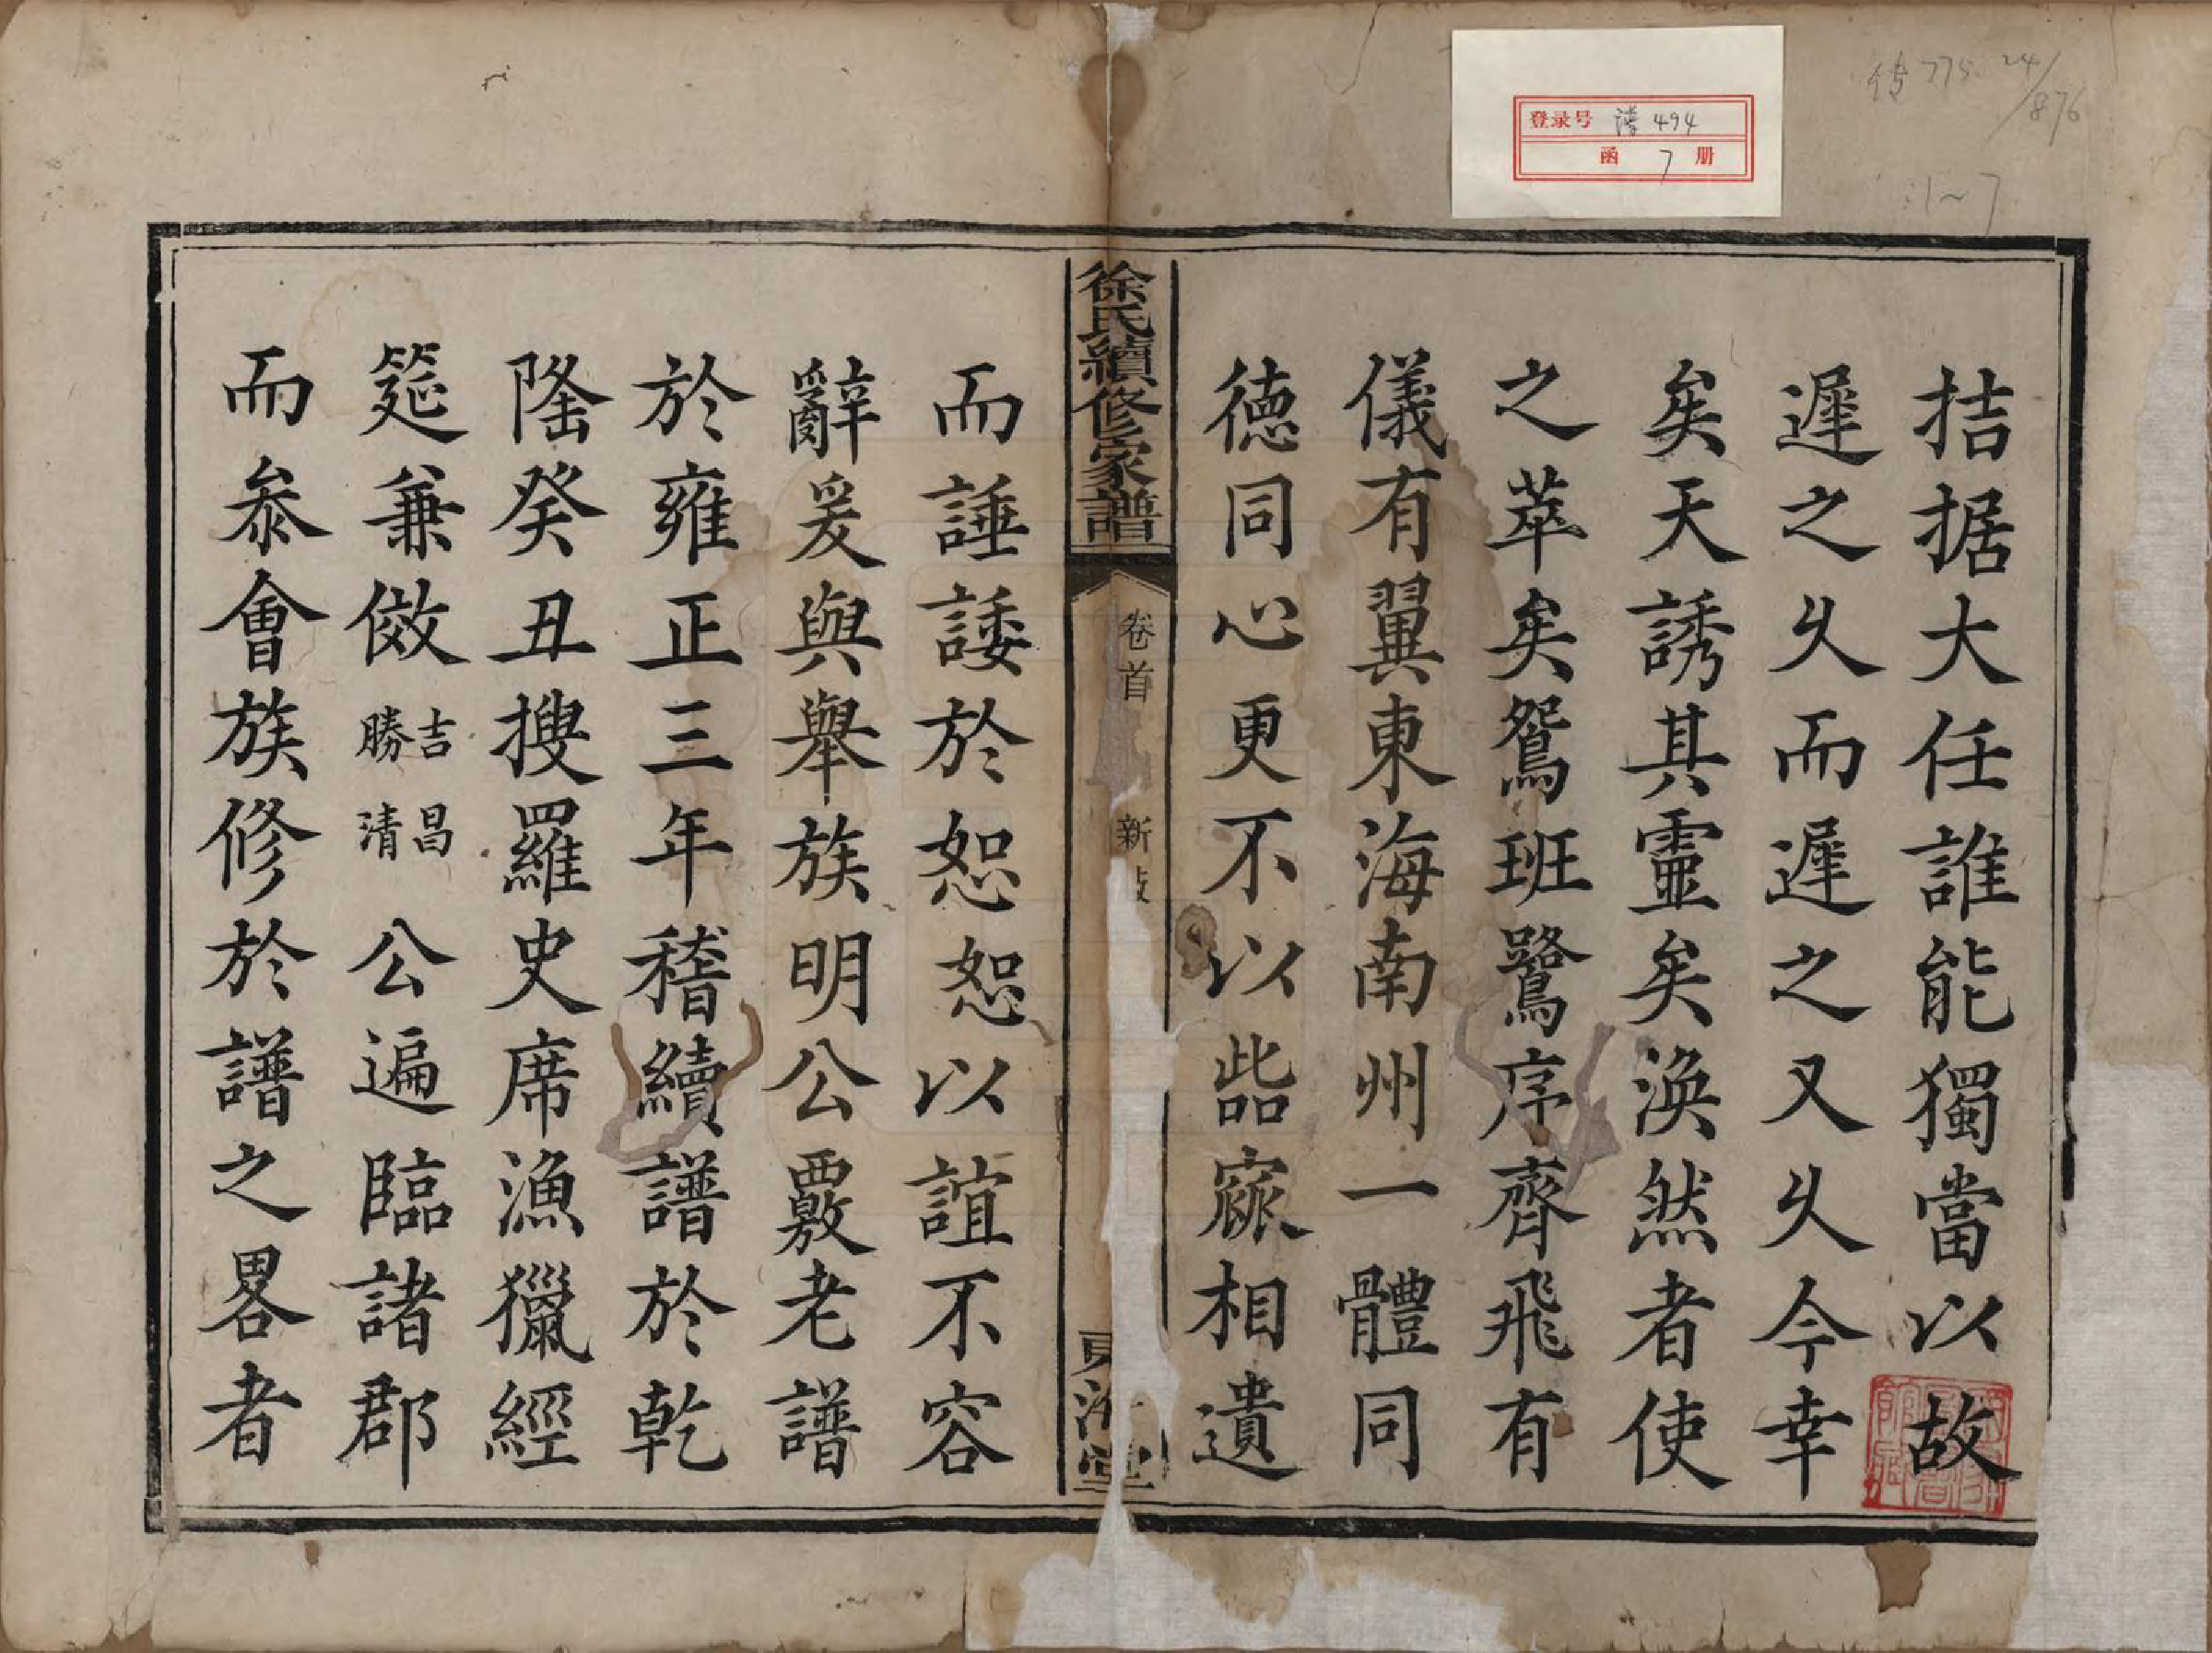 拮据大任誰能獨當以故
遲之久而遲之又久今幸
矣天誘其靈矣渙然者使
之萃矣鴛班鷺序齊飛有
儀有翼東海南州一體同
德同心更不以訾窳相遺
徐氏續修家譜
卷首
新
堂
而諈諉於恕恕以誼不容
辭爰與舉族明公覈老譜
於雍正三年稽續譜於乾
隆癸丑搜羅史席漁獵經
筵兼倣吉昌勝清公遍臨諸郡
而叅會族修於譜之畧者
登录号 譜 494
函 7 册
传 775.24/876
:1~7